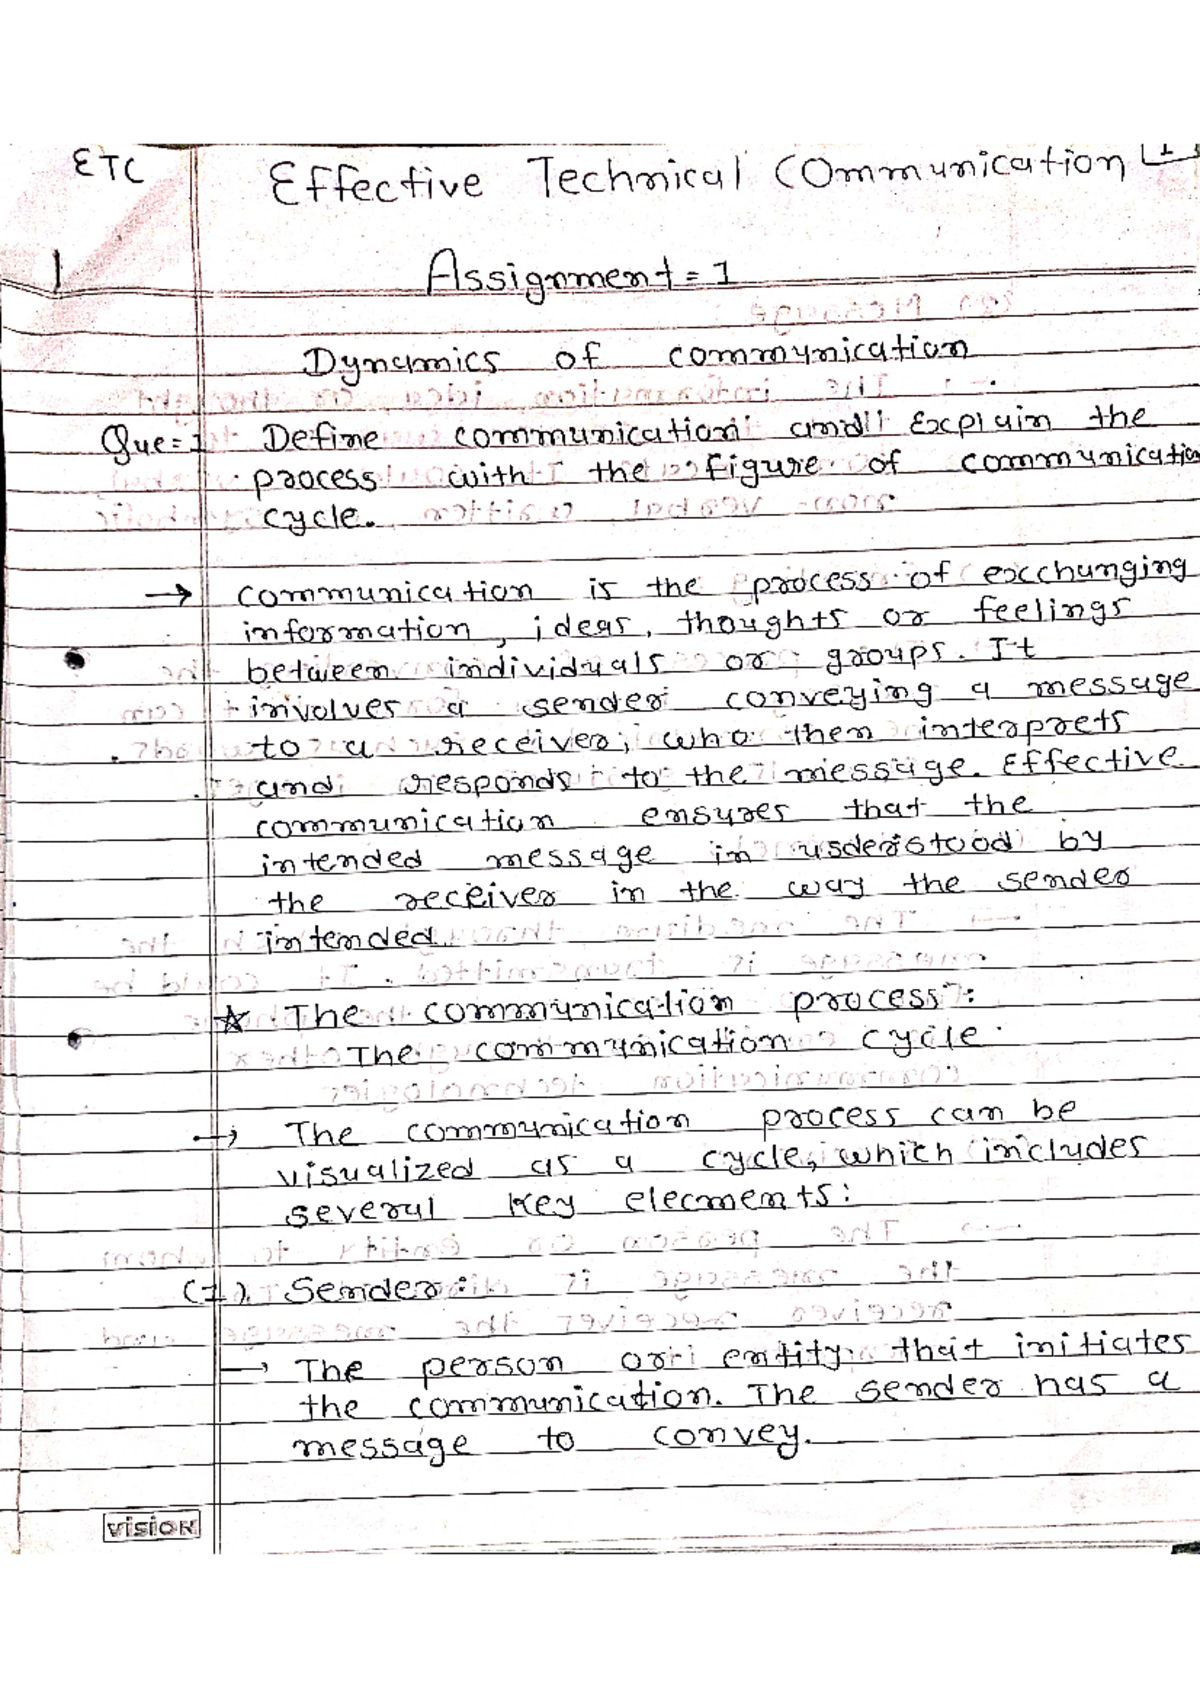 ETC
Effective Technical Communication
1
Assignment = 1
Dynamics of communication
Que = 1 Define communication and Explain the
process with the figure of communication
cycle.
→ communication is the process of excchanging
information, ideas, thoughts or feelings
between individuals or groups. It
involves a sender conveying a message
to a receiver, who then interprets
and responds to the message. Effective
communication ensures that the
intended message in usderstood by
the receiver in the way the sender
intended.
☆ The communication process:
The communication cycle.
→ The communication process can be
visualized as a cycle, which includes
several key elecments:
(1). Sender:
→ The person or entity that initiates
the communication. The sender has a
message to convey.
vision